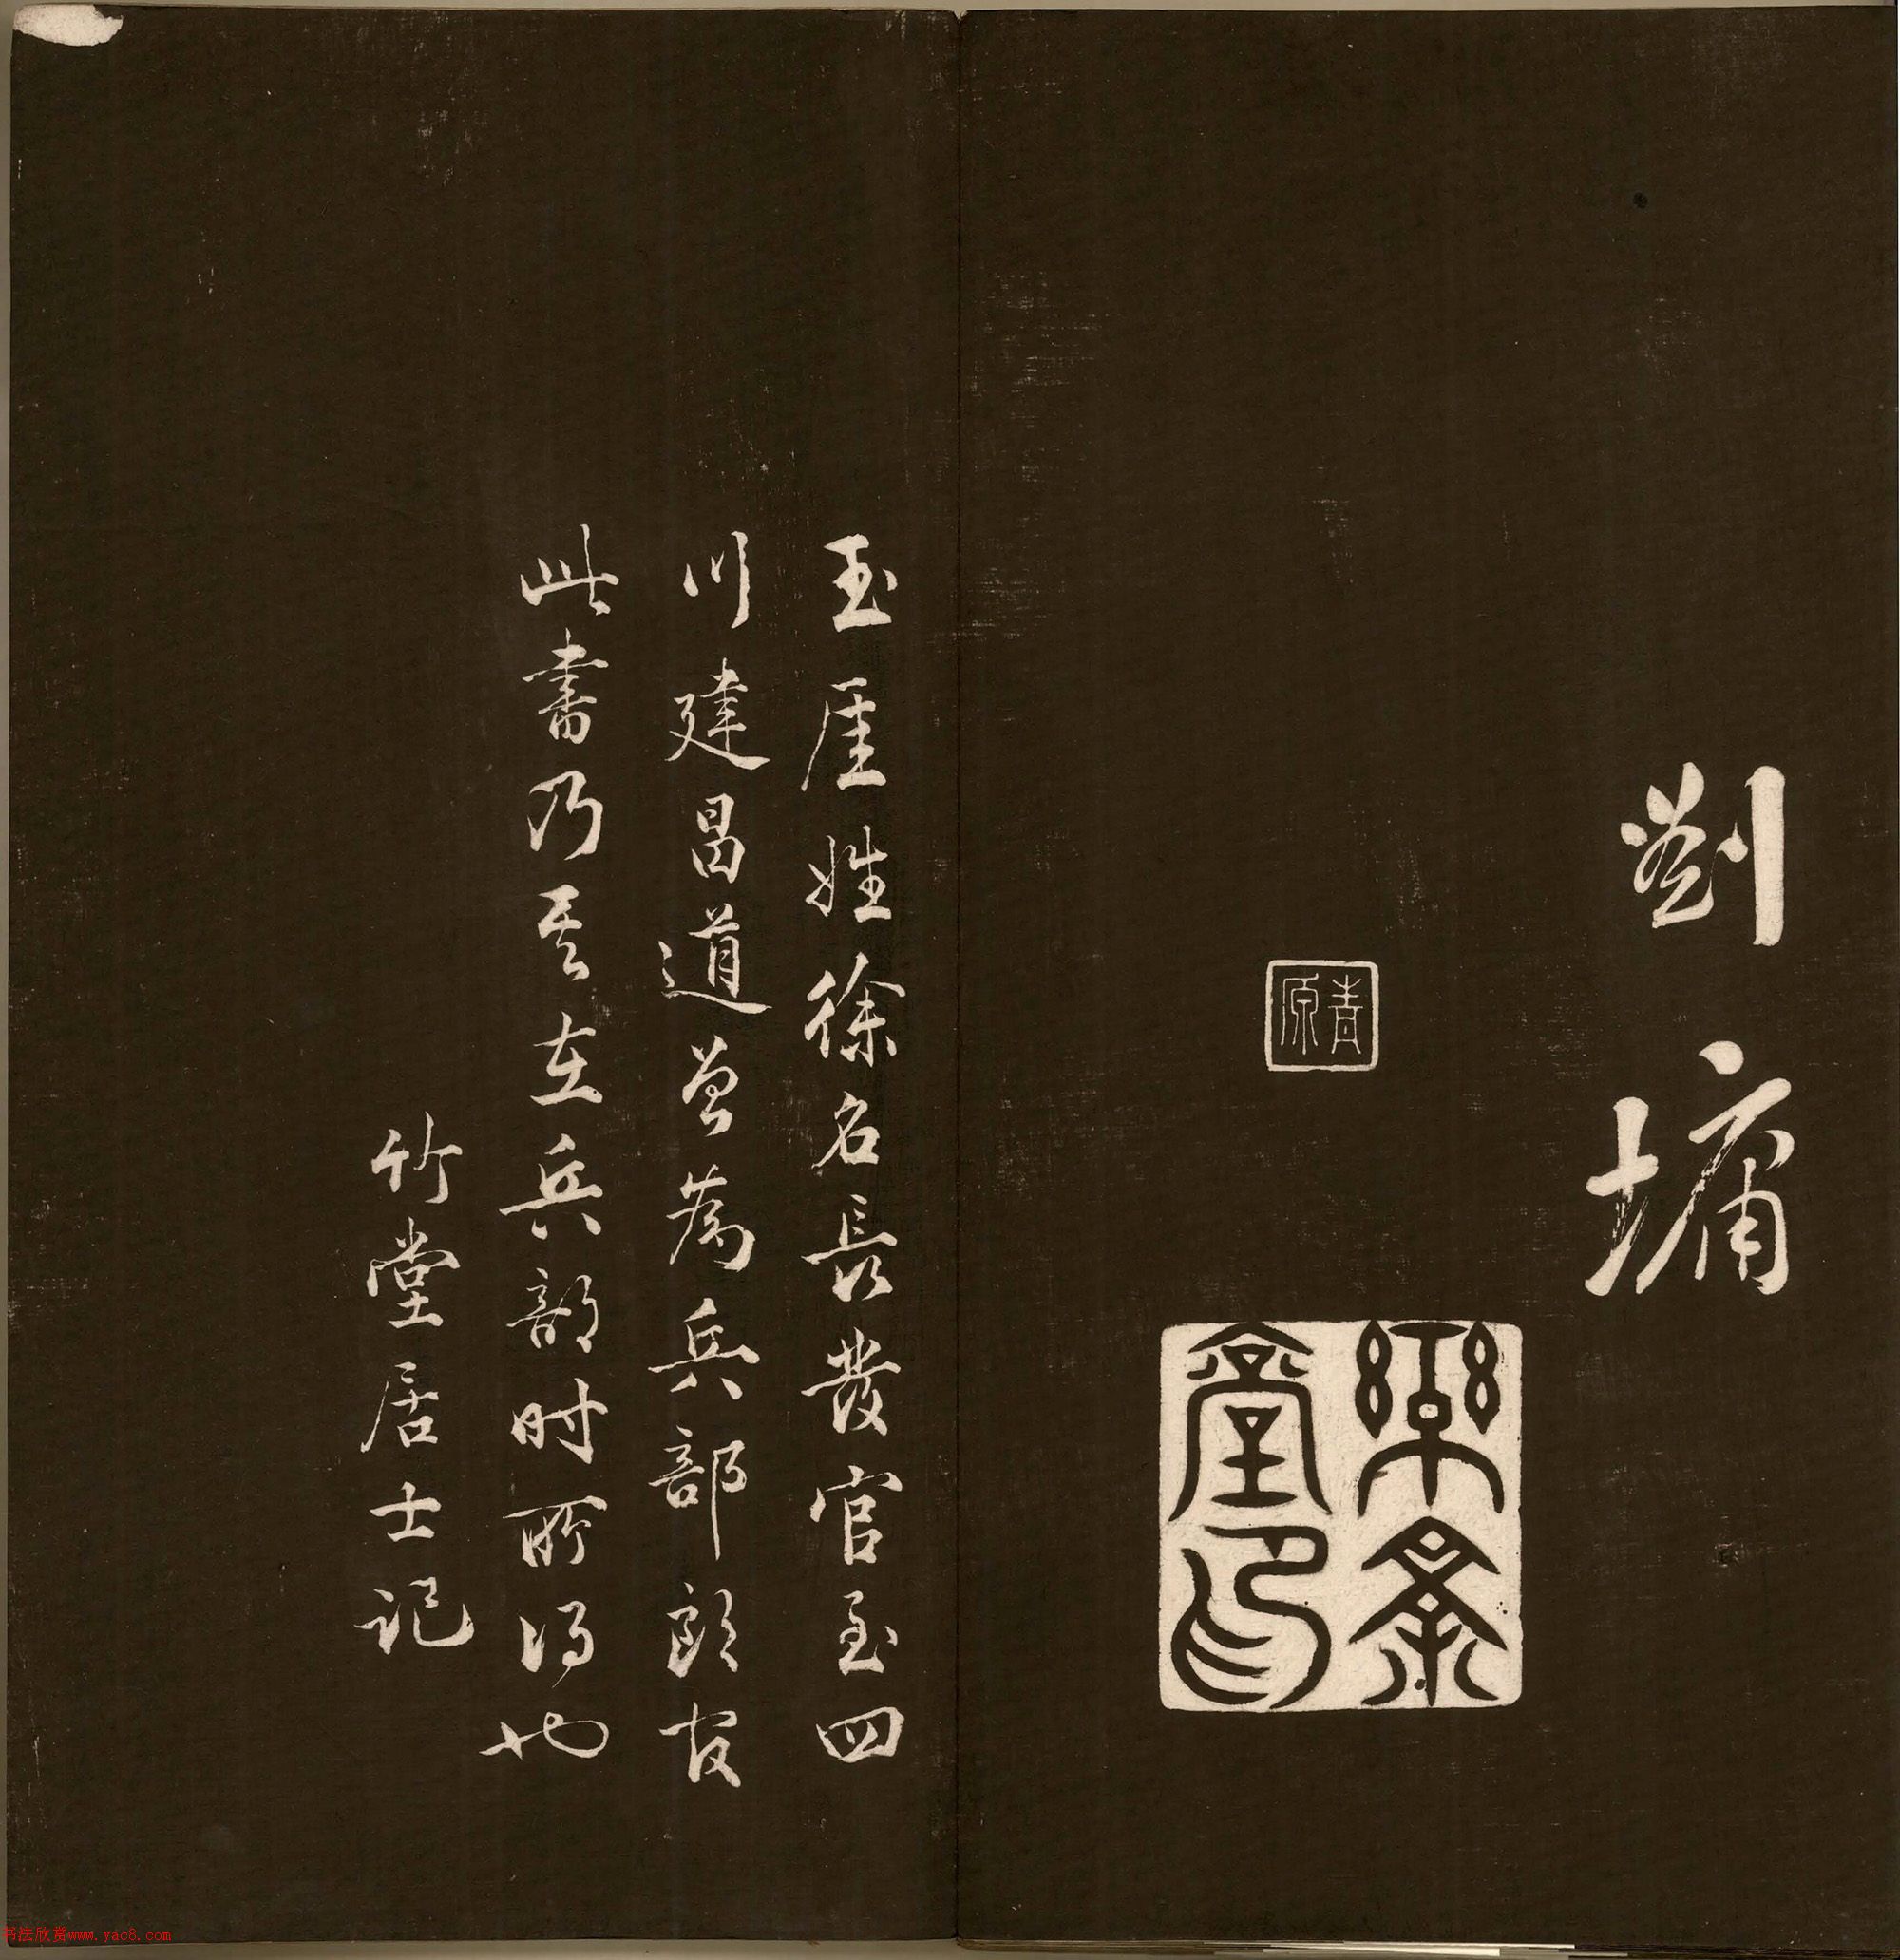 劉墉
青原
玉厓姓徐名長發官至四
川建昌道曾為兵部郎官
此書乃其在兵部时所得也
竹堂居士記
书法欣赏www.yac8.com